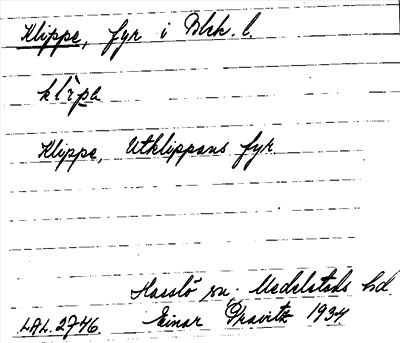 Klippe, fyr i Blek. l.
klìpa
Klippe, Utklippans fyr
Hasslö sn. Medelstads hd.
LAL. 2776. Einar Pravitz 1934